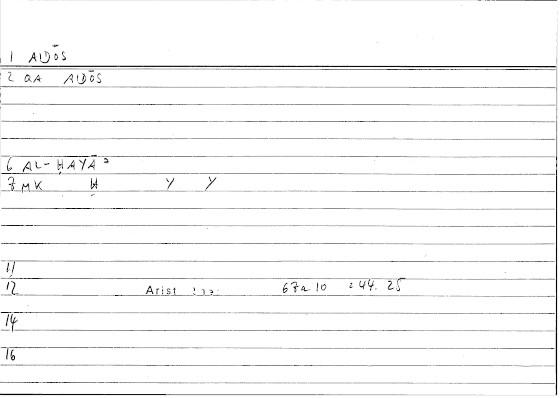 1 AIDŌS
2 QA AIDŌS
6 AL-ḤAYĀʾ
7 MK Ḥ Y Y
11
12 Arist 67a10 = 44. 25
14
16